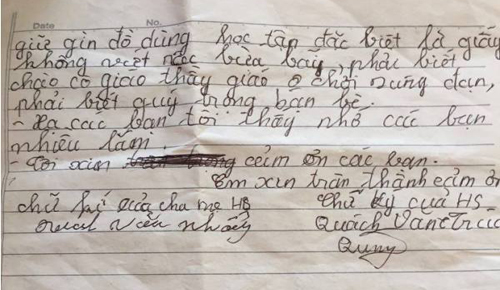 Date No.
giữ gìn đồ dùng học tập đặc biệt là giấy
không viết bừa bãy, phải biết
chào cô giáo thầy giáo o chơi súng đạn,
phải biết quý trọng bạn bè.
- Xa các bạn tôi thấy nhớ các bạn
nhiều lắm.
- Tôi xin cảm ơn các bạn.
Em xin trân thành cảm ơn
chữ kí của cha mẹ HS Chữ ký của HS
Quách Văn